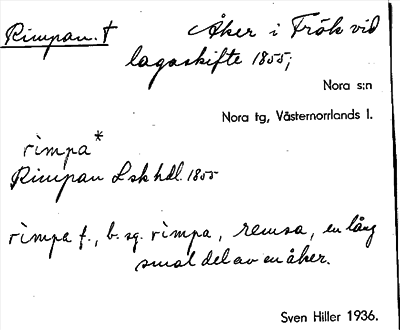 Rimpan. † Åker i Frök vid
lagaskifte 1855;
Nora s:n
Nora tg, Västernorrlands l.
rimpa*
Rimpan Lsk hdl. 1855
rimpa f., b. sg. rimpa, remsa, en lång
smal del av en åker.
Sven Hiller 1936.